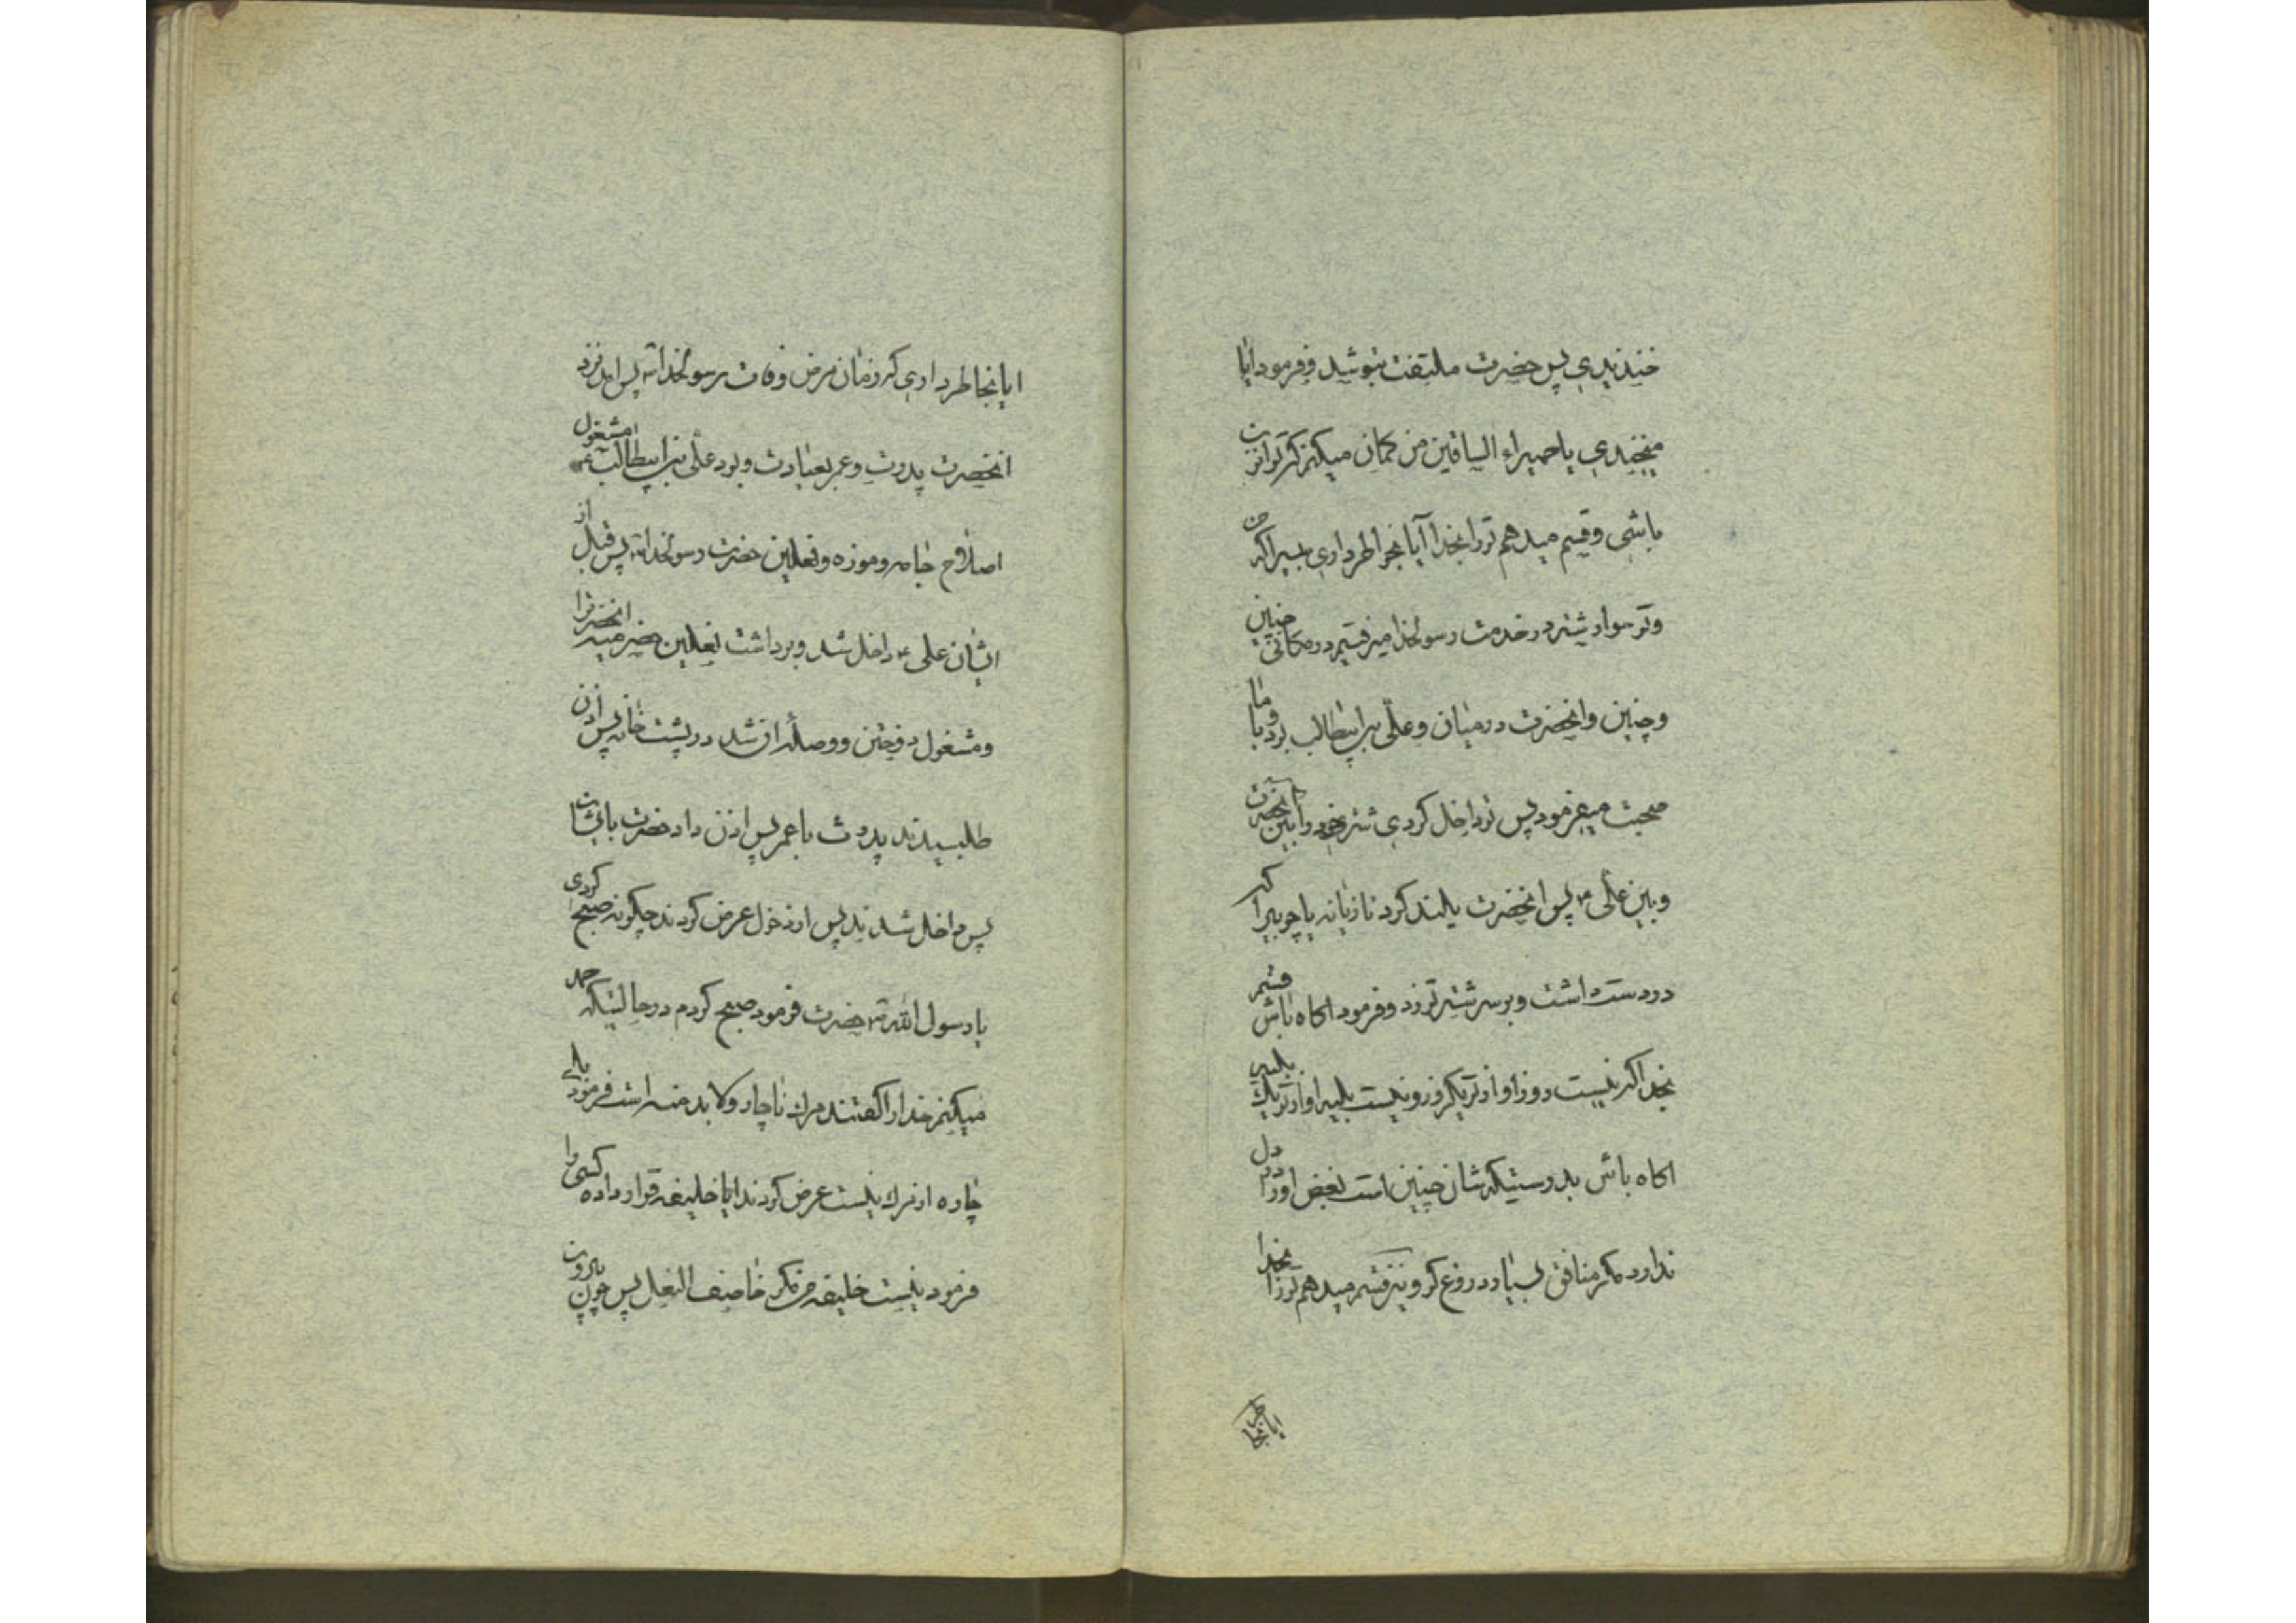 خندیدی پس حضرت ملتفت بتو شد و فرمود ایا
میخندی یا حمیراء الساقین من گمان میکنم که تو ازن
باشی و قسم میدهم ترا بخدا آیا بخواطر داری که
و تو سوار شتر در خدمت رسولخدا میرفتیم در مکانی چنین
و چنین و انحضرت در میان و علی بن ابیطالب بود و با ما
صحبت میفرمود پس تو داخل کردی شتر خود را بین انحضرت
و بین علی ع پس انحضرت بلند کرد تازیانه یا چوبیرا که
در دست داشت و بر سر شتر تو زد و فرمود اکاه باش قسم
بخدا اکر نیست روز او از تو یکروز و نیست بلیه او از تو یک بلیه
اکاه باش بدرستیکه شان چنین است بغض او را در دل
ندارد مکر منافق بسیار دروغ کو و نیز قسم میدهم تو را بخدا
ایا بخاطر
ایا بخاطر داری که زمان مرض وفات رسولخدا ص پس امد نزد
انحضرت پدرت و عمر بعیادت و بود علی بن ابیطالب ع مشغول
اصلاح جامه و موزه و نعلین حضرت رسولخدا ص پس قبل از
ایشان علی ع داخل شد و برداشت نعلین انحضرترا
و مشغول دوختن و وصله ان شد در پشت خانه پس اذن
طلبیدند پدرت با عمر پس اذن داد حضرت بایشان
پس داخل شدند پس از دخول عرض کردند چکونه صبح کردی
یا رسول الله ص حضرت فرمود صبح کردم در حالتیکه حمد
میکنم خدا را کفتند مرك ناچار و لا بد منه است فرمود بلی
چاره از مرك نیست عرض کردند ایا خلیفه قرار داده کسی را
فرمود نیست خلیفه من مکر خاصف النعل پس چون بیرون